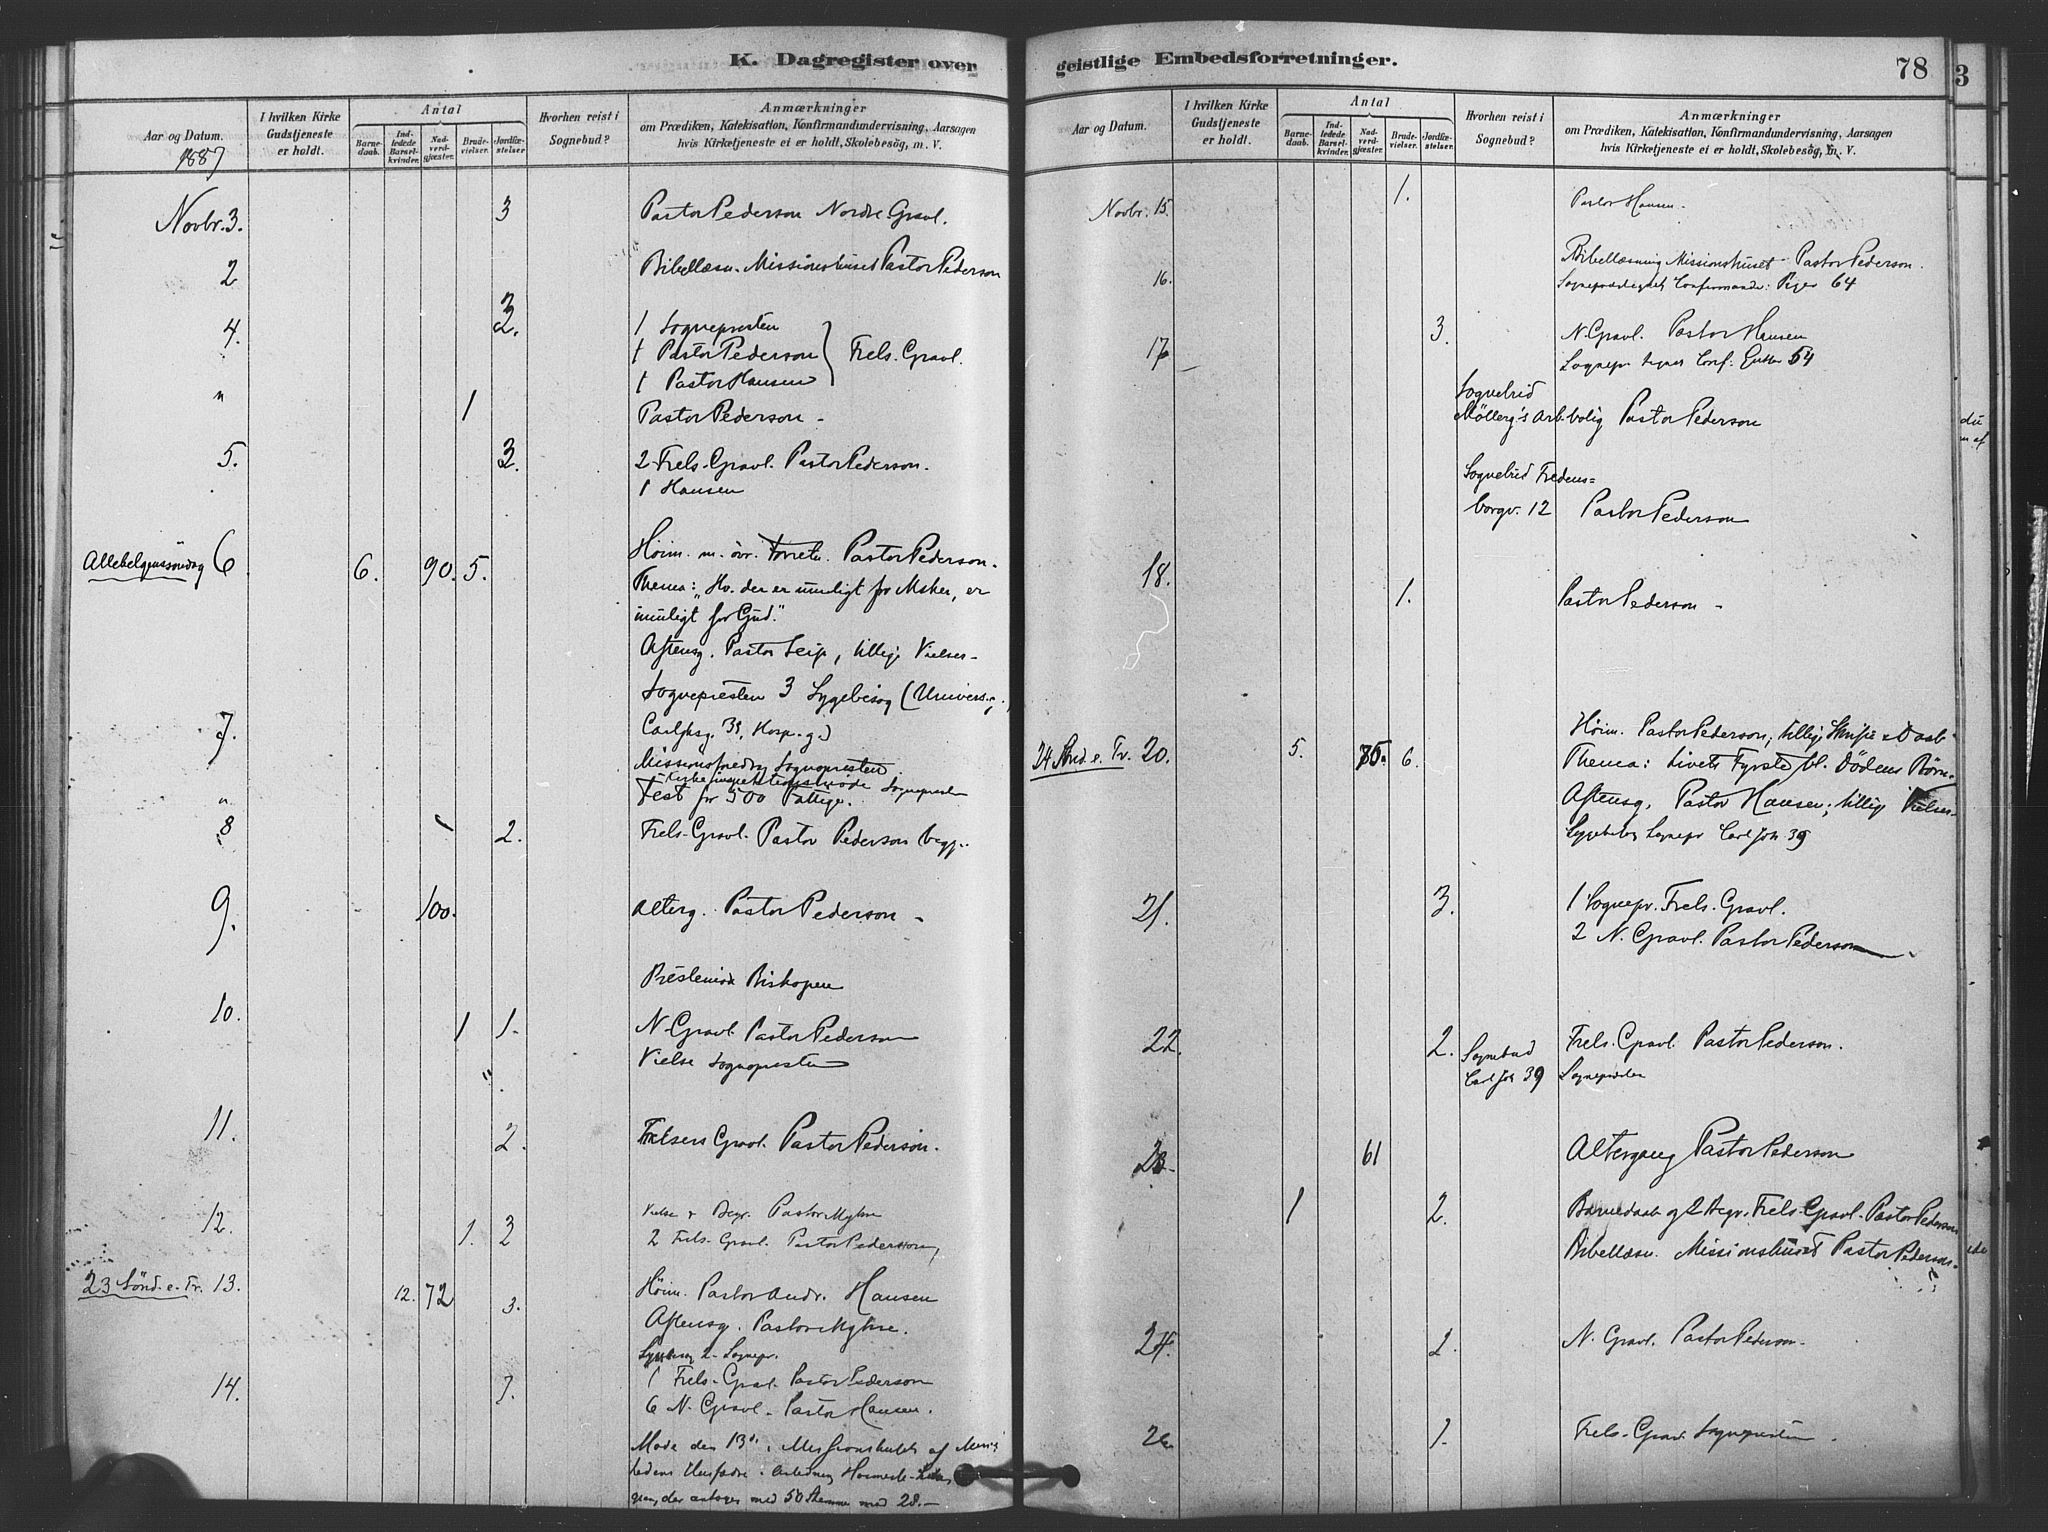 K. Dagregister over
Aar og Datum.
1887
I hvilken Kirke Gudstjeneste er holdt.
Antal
Barne-daab.
Ind-ledede Barsel-kvinder.
Nad-verd-gjæster.
Brude-vielser.
Jordfæ-stelser
Hvorhen reist i Sognebud?
Anmærkninger
om Prædiken, Katekisation, Konfirmandundervisning, Aarsagen
hvis Kirketjeneste ei er holdt, Skolebesög, m. V.
Novbr. 3. 3 Pastor Pederson Nordre Gravl.
2 Bibellæsn. Missionshuset Pastor Pederson
4. 3. 1 Sognepresten
1 Pastor Pederson Frels. Gravl.
1 Pastor Hansen
" 1 Pastor Pederson -
5. 3. 2 Frels. Gravl. Pastor Pederson.
1 Hansen
Allehelgenssöndag 6 6. 90. 5. Höim. m. övr. Forretn. Pastor Pederson.
Thema: "Hv. der er umuligt for Msker, er
muligt for Gud."
Aftensg. Pastor Seip, tillige Vielser-
7. Sognepresten 3 Sygebesög (Univers.g.,
Carljhsg. 39, Hosp. g.)
Missionsforedrag Sognepresten
" Fest for 500 Fattige. Sognepresten
8 2. Frels. Gravl. Pastor Pederson begge.
9. 100. Alterg. Pastor Pederson -
Prestemöde Biskopen
10. 1 1. N. Gravl. Pastor Pederson
Vielse Sognepresten
11. 2. Frelsers Gravl. Pastor Pederson.
12. 1. 3 Vielse & Begr. Pastor Myhre
2 Frels. Gravl. Pastor Pederson,
23 Sönd. e. Tr. 13. 12. 72 3. Höim. Pastor Andr. Hansen
Aftensg. Pastor Myhre.
Sygebesög 2 Sognepr.
14. 7. 1 Frels. Gravl. Pastor Pederson
6 N. Gravl. Pastor Hansen.
Möde den 13de i Missionshuset af Menig
hedens Husfædre i Anledning
der antoges med 50 Stemmer mod 28.-
geistlige Embedsforretninger.
78
3
Aar og Datum.
I hvilken Kirke Gudstjeneste er holdt.
Antal
Barne-daab.
Ind-ledede Barsel-kvinder.
Nad-verd-gjæster.
Brude-vielser.
Jordfæ-stelser.
Hvorhen reist i Sognebud?
Anmærkninger
om Prædiken, Katekisation, Konfirmandundervisning, Aarsagen
hvis Kirketjeneste ei er holdt, Skolebesög, m. V.
Novbr. 15. 1. Pastor Hansen.
16. Bibellæsning Missionshuset Pastor Pederson.
Confirmander: Piger 64
17 3. N. Gravl. Pastor Hansen
Sognepr. Conf. Gutter 54
Sognebud
Möllerg's Arb. bolig Pastor Pederson
Sognebud Fredens=
borgv. 12 Pastor Pederson
18. 1. Pastor Pederson -
24 Sönd. e. Tr. 20. 5. 75. 6. Höim. Pastor Pederson, tillige Skrifte & Daab
Thema: Livets Fyrste bl. Dödens Börn.
Aftensg. Pastor Hansen; tillige Vielser.
Sygebesög Sognepr Carl Joh 39
21. 3. 1 Sognepr. Frels. Gravl.
2 N. Gravl. Pastor Pederson
22. 2. Frels. Gravl. Pastor Pederson.
Sognebud
Carl Joh 39 Sognepresten
23. 61 Altergang Pastor Pederson
1 2. Barnedaab og 2 Begr. Frels Gravl. Pastor Pederson
Bibellæsn. Missionshuset Pastor Pederson.
24. 2. N. Gravl. Pastor Pederson.
26 1. Frels. Grav. Sognepresten.